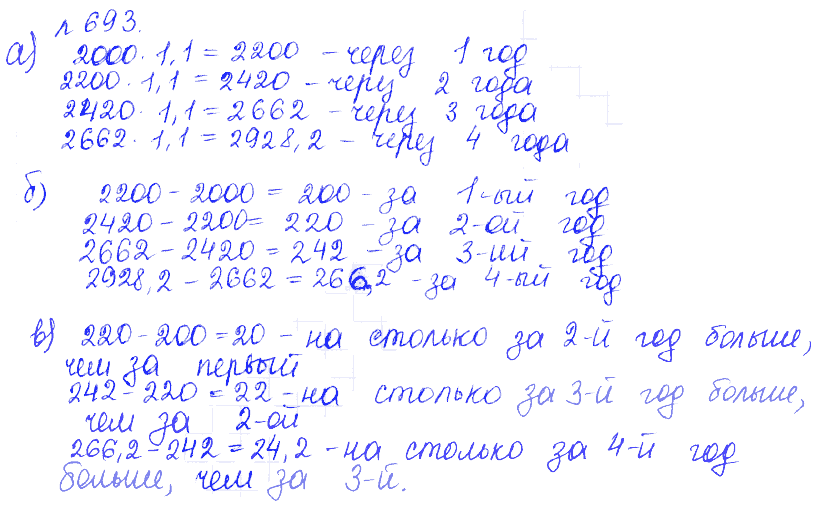 № 693.
а) 2000 · 1,1 = 2200 – через 1 год
2200 · 1,1 = 2420 – через 2 года
2420 · 1,1 = 2662 – через 3 года
2662 · 1,1 = 2928,2 – через 4 года
б) 2200 – 2000 = 200 – за 1-ый год
2420 – 2200 = 220 – за 2-ой год
2662 – 2420 = 242 – за 3-ий год
2928,2 – 2662 = 266,2 – за 4-ый год
в) 220 – 200 = 20 – на столько за 2-й год больше,
чем за первый
242 – 220 = 22 – на столько за 3-й год больше,
чем за 2-ой
266,2 – 242 = 24,2 – на столько за 4-й год
больше, чем за 3-й.